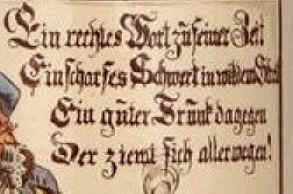 Ein rechtes Wort zu seiner Zeit
Ein scharfes Schwert in wildem Streit
Ein guter Trunk dagegen
Der ziemt sich allerwegen!